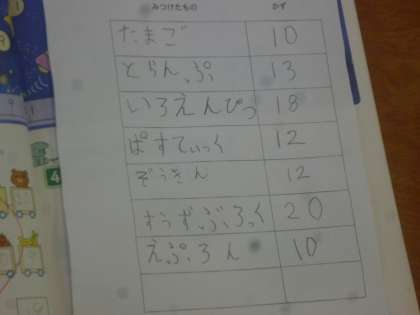 みつけたもの かず
たまご 10
とらんぷ 13
いろえんぴつ 18
ぱすてぃっく 12
ぞうきん 12
すうずぶろっく 20
えぷろん 10
4